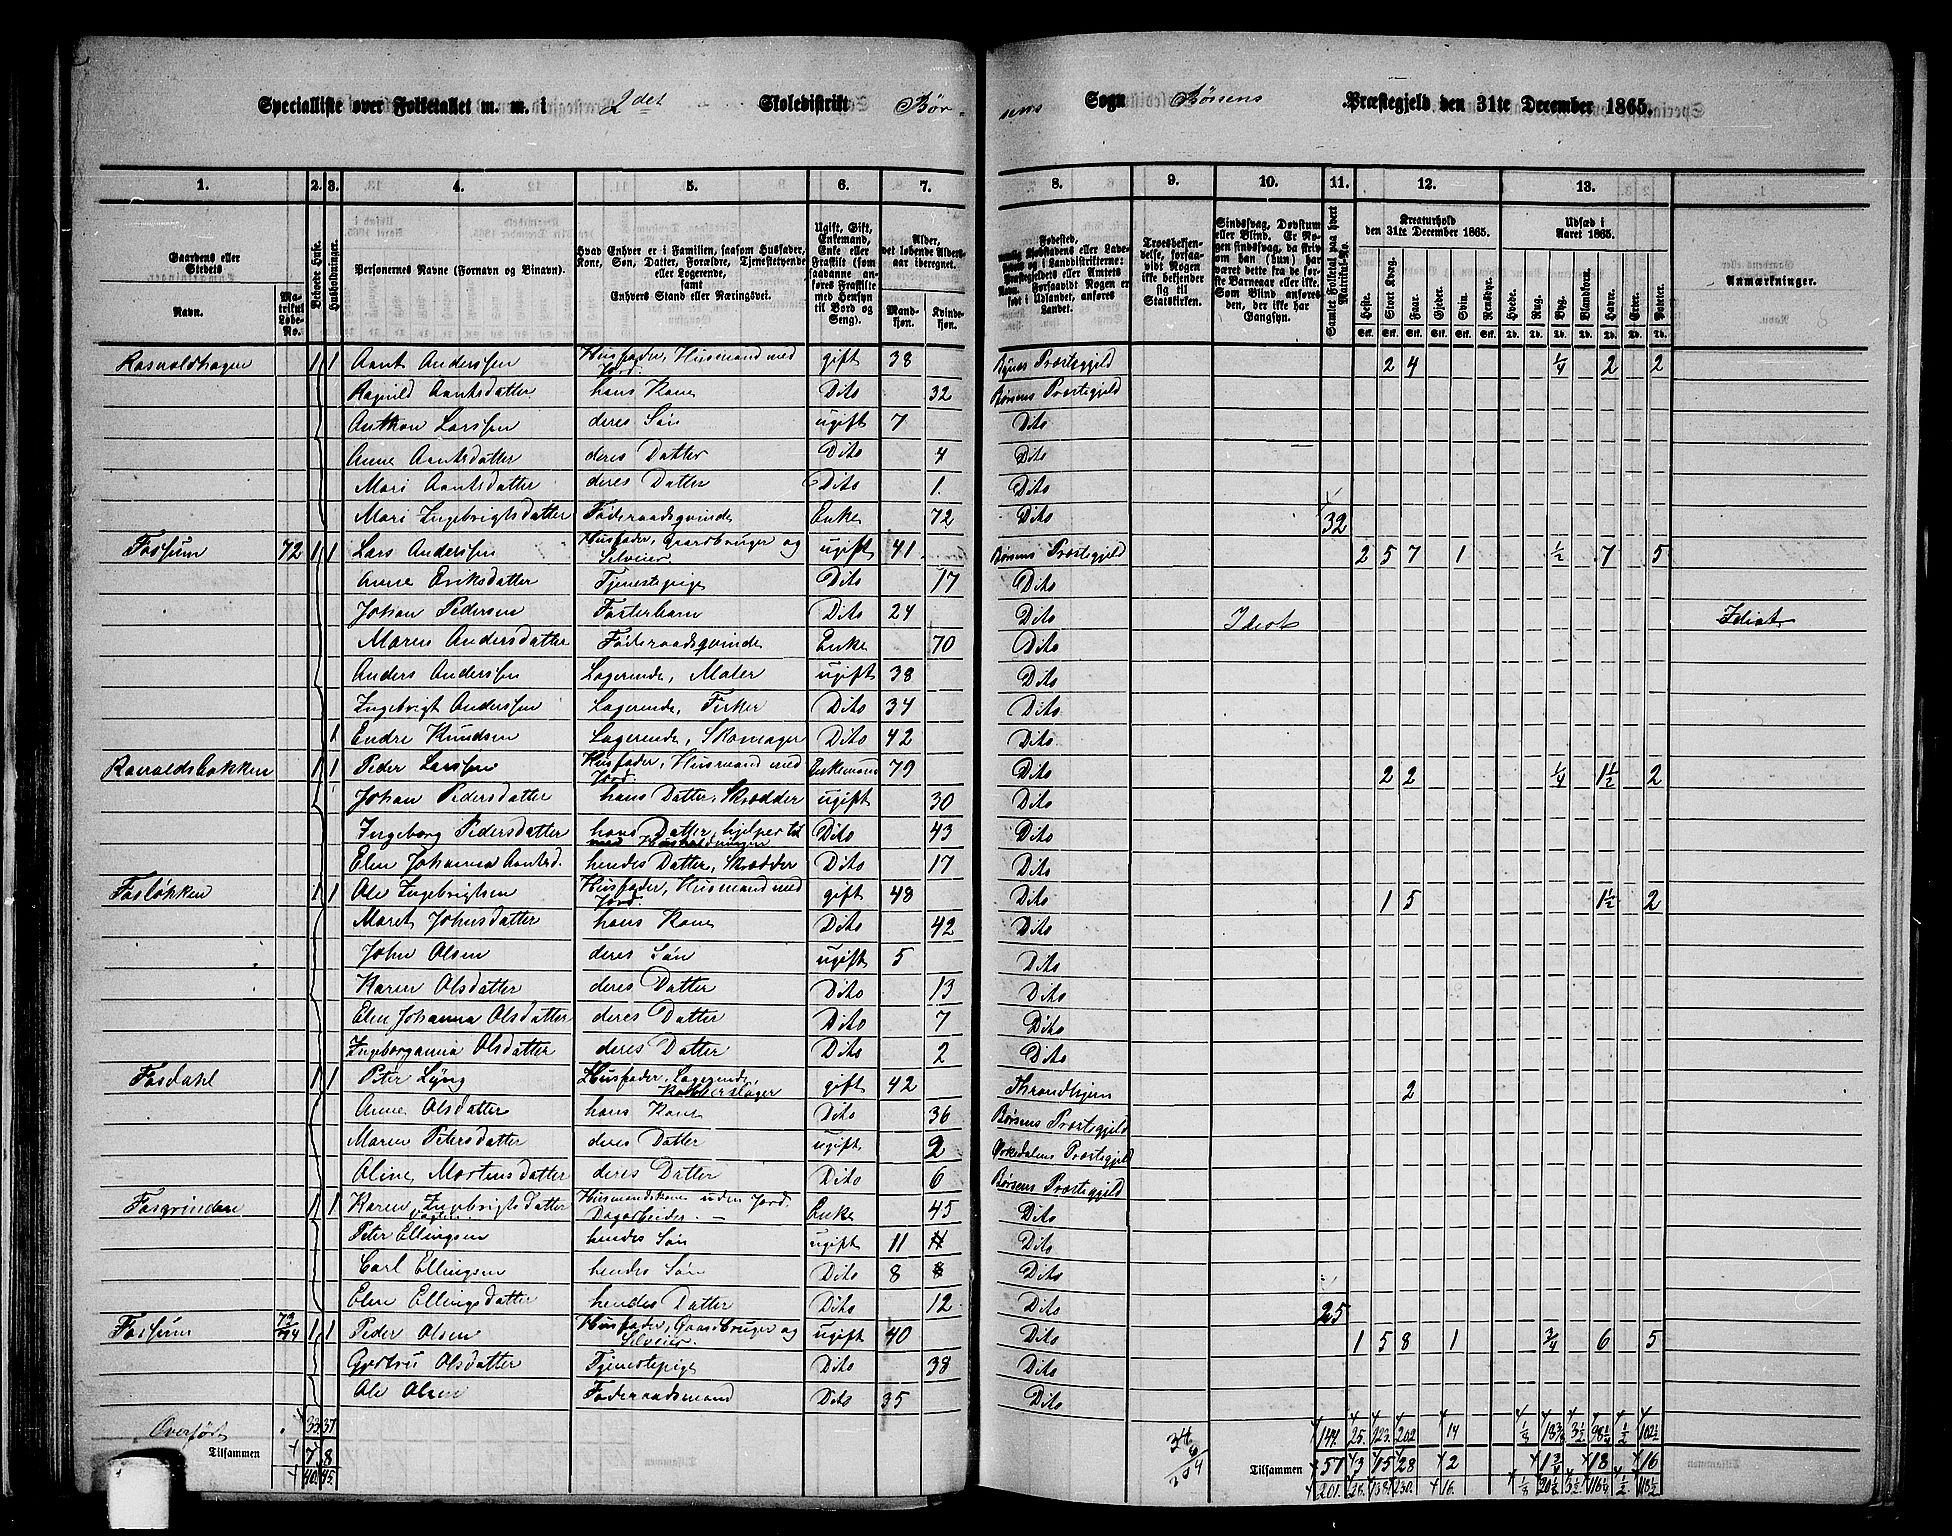 Specialliste over Folketallet m. m. i 2det Skoledistrikt Bør-
sens Sogn Børsens Præstegjeld den 31te December 1865.
1. 2. 3. 4. 5. 6. 7. 8. 9. 10. 11. 12. 13.
Gaardens eller Stedets
Navn.
Matrikul Løbe-No.
Beboede Huse.
Husholdninger.
Personernes Navne (Fornavn og Binavn).
Hvad Enhver er i Familien, saasom Husfader, Kone, Søn, Datter, Forældre, Tjenestetyende, eller Logerende, samt Enhvers Stand eller Næringsvei.
Ugift, Gift, Enkemand, Enke eller Fraskilt (som saadanne anføres Fraskilte med Hensyn til Bord og Seng).
Alder, det løbende Alders-aar iberegnet.
Mandkjøn. Kvindekjøn.
Troesbekjendelse, forsaavidt Nogen ikke bekjender sig til Statskirken.
Sindssvag, Døvstum eller Blind. Er Nogen sindssvag, da skrives om han (hun) har været dette fra de første Barneaar eller ikke. Som Blind anføres den, der ikke har Gangsyn.
Samlet Folketal paa hvert Matrikul-No.
Kreaturhold den 31te December 1865.
Heste. Stort Kvæg. Faar. Gjeder. Svin. Rensdyr.
Udsæd i Aaret 1865.
Hvede. Rug. Byg. Blandkorn. Havre. Erter. Poteter.
Anmærkninger.
1 1 Aant Anderssen Husfader, Husmand med Jord gift 38 Bynes Præstegjeld 2 4 1/4 2 2
Ragnild Aantsdatter hans Kone Dito 32 Børsens Præstegjeld
Anthon Larssen deres Søn ugift 7 Dito
Anne Aantsdatter deres Datter Dito 4 Dito
Mari Aantsdatter deres Datter Dito 1. Dito
Mari Ingebrigtsdatter Føderaadsqvinde Enke 72 Dito 32
Fossum 72 1 1 Lars Anderssen Husfader, Gaardbruger og Selveier ugift 41 Børsens Præstegjeld 2 5 7 1 1/2 7 5
Anne Eriksdatter Tjenestepige Dito 17 Dito
Johan Pedersen Fosterbarn Dito 24 Dito Idiot Idiot
Maren Andersdatter Føderaadsqvinde Enke 70 Dito
Anders Anderssen Logerende, Maler ugift 38 Dito
Ingebrigt Anderssen Logerende, Fisker Dito 34 Dito
1 Endre Knudsen Logerende, Skomager Dito 42 Dito
1 1 Peder Larssen Husfader, Husmand med Jord Enkemand 79 Dito 2 2 1/4 1 1/2 2
Johan Pedersdatter hans Datter, Skrædder ugift 30 Dito
Ingeborg Pedersdatter hans Datter, hjelper til med Husholdningen Dito 43 Dito
Elen Johanna Aantsd. hendes Datter, Skrædder Dito 17 Dito
Fosløkken 1 1 Ole Ingebrigtsen Husfader, Husmand med Jord. gift 48 Dito 1 5 1 1/2 2
Maret Johnsdatter hans Kone Dito 42 Dito
John Olsen deres Søn ugift 5 Dito
Karen Olsdatter deres Datter Dito 13 Dito
Elen Johanna Olsdatter deres Datter Dito 7 Dito
Ingeborganna Olsdatter deres Datter Dito 2 Dito
Fosdahl 1 1 Peter Lyng Husfader, Logerende, Kobberslager gift 42 Throndhjem 2
Anne Olsdatter hans Kone Dito 36 Børsens Præstegjeld
Maren Petersdatter deres Datter ugift 2 Orkedalens Præstegjeld
Oline Mortensdatter deres Datter Dito 6 Børsens Præstegjeld
Fosgrinden 1 1 Karen Ingebrigtsdatter Husmandskone uden Jord. Dagarbeider. Enke 45 Dito
Peter Ellingsen hendes Søn ugift 11 Dito
Carl Ellingsen hendes Søn Dito 8 8 Dito
Elen Ellingsdatter hendes Datter Dito 12 Dito 25
Fossum 1 1 Peder Olsen Husfader, Gaardbruger og Selveier ugift 40 Dito 1 5 8 1 3/4 6 5
Gjertru Olsdatter Tjenestepige Dito 38 Dito
Ole Olsen Føderaadsmand Dito 35 Dito
Overført 33 37 144 25. 123. 202. 14 1/8 3 1/2 1/2 102 1/2
Tilsammen 7 8 Tilsammen 57 3 15 28 2 18 16
40 45 201. 28. 138. 230. 16. 1/8 3 1/2 1/2 118 1/2